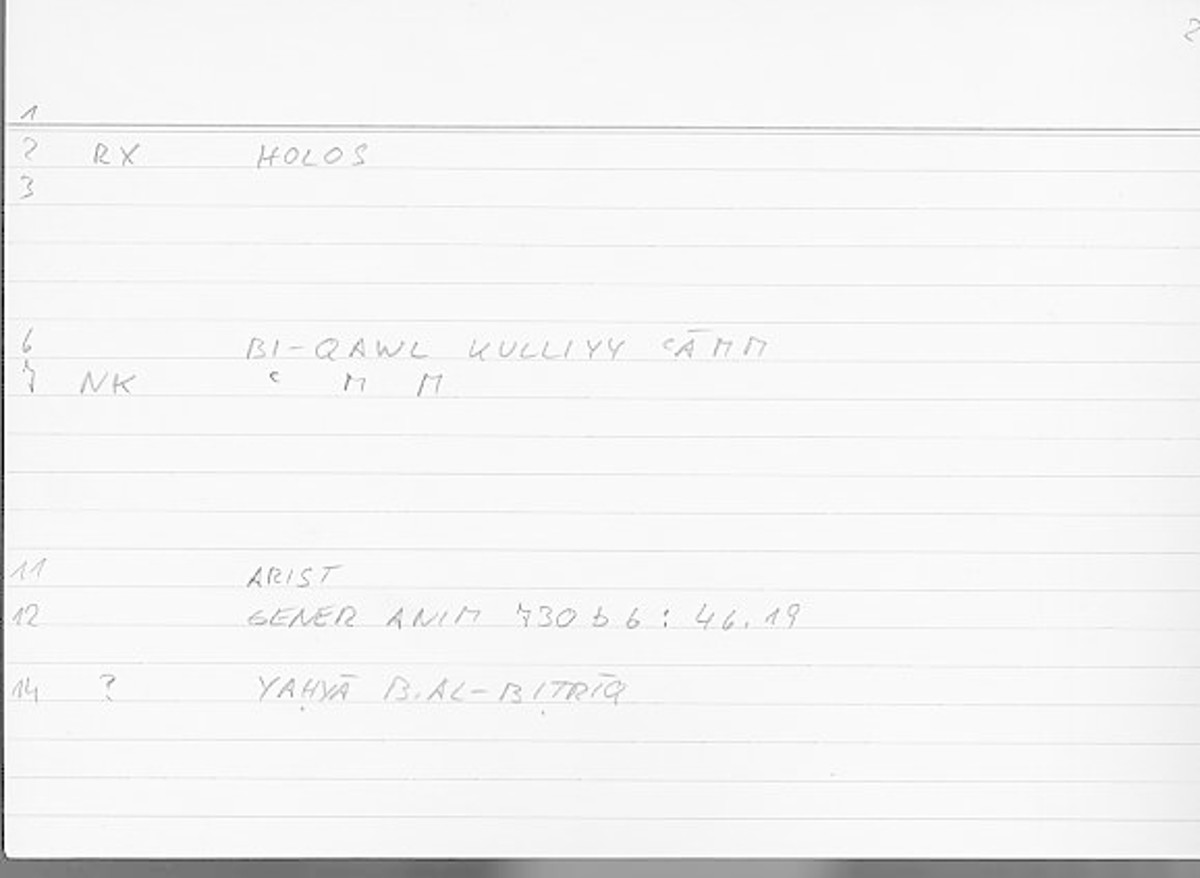 2
1
2 RX HOLOS
3
6 BI-QAWL KULLIYY ʿĀMM
7 NK ʿ M M
11 ARIST
12 GENER ANIM 730 b 6 : 46.19
14 ? YAḤYĀ B.AL-BIṬRĪQ